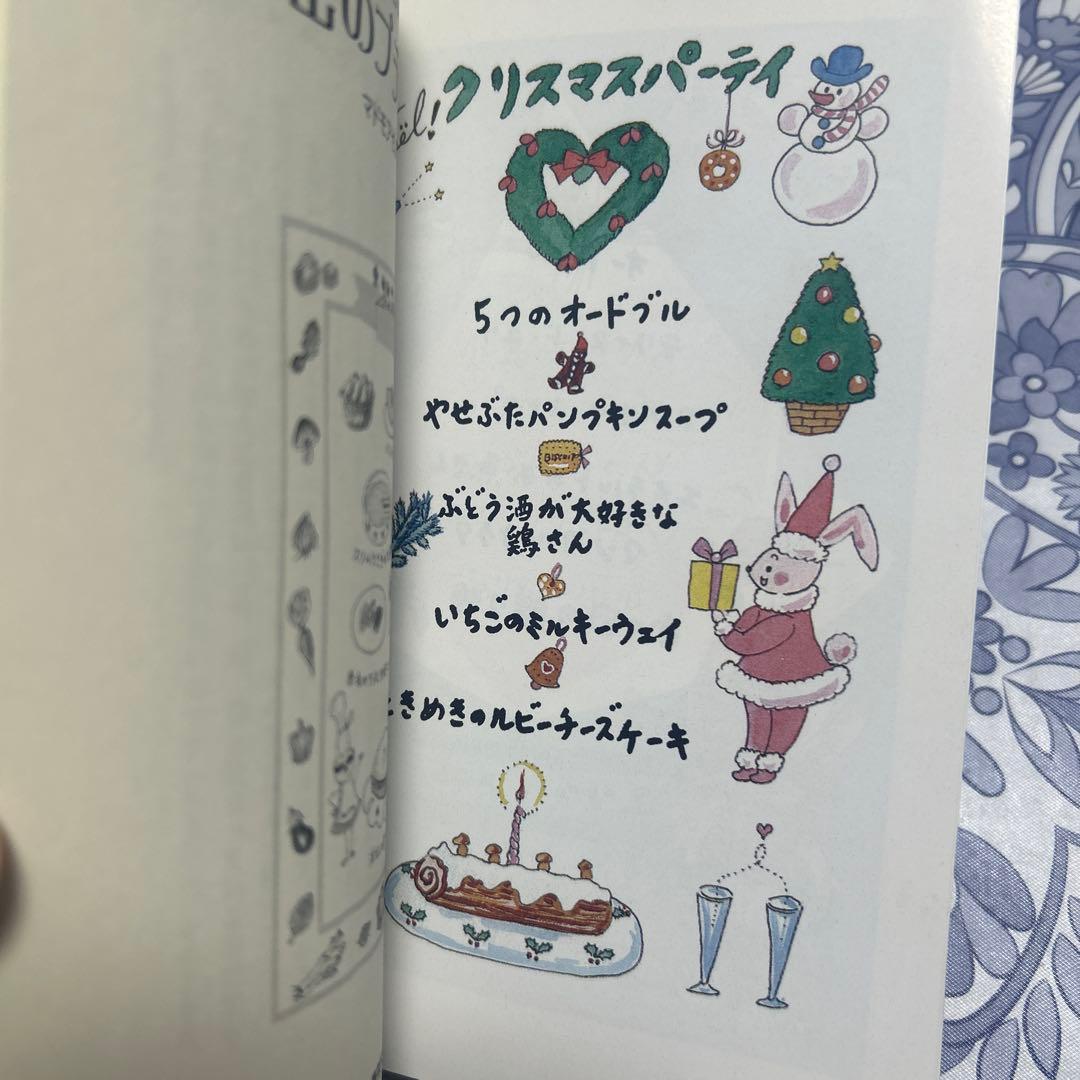 クリスマスパーティ
5つのオードブル
やせぶたパンプキンスープ
BISCUIT
ぶどう酒が大好きな
鶏さん
いちごのミルキーウェイ
ときめきのルビーチーズケーキ